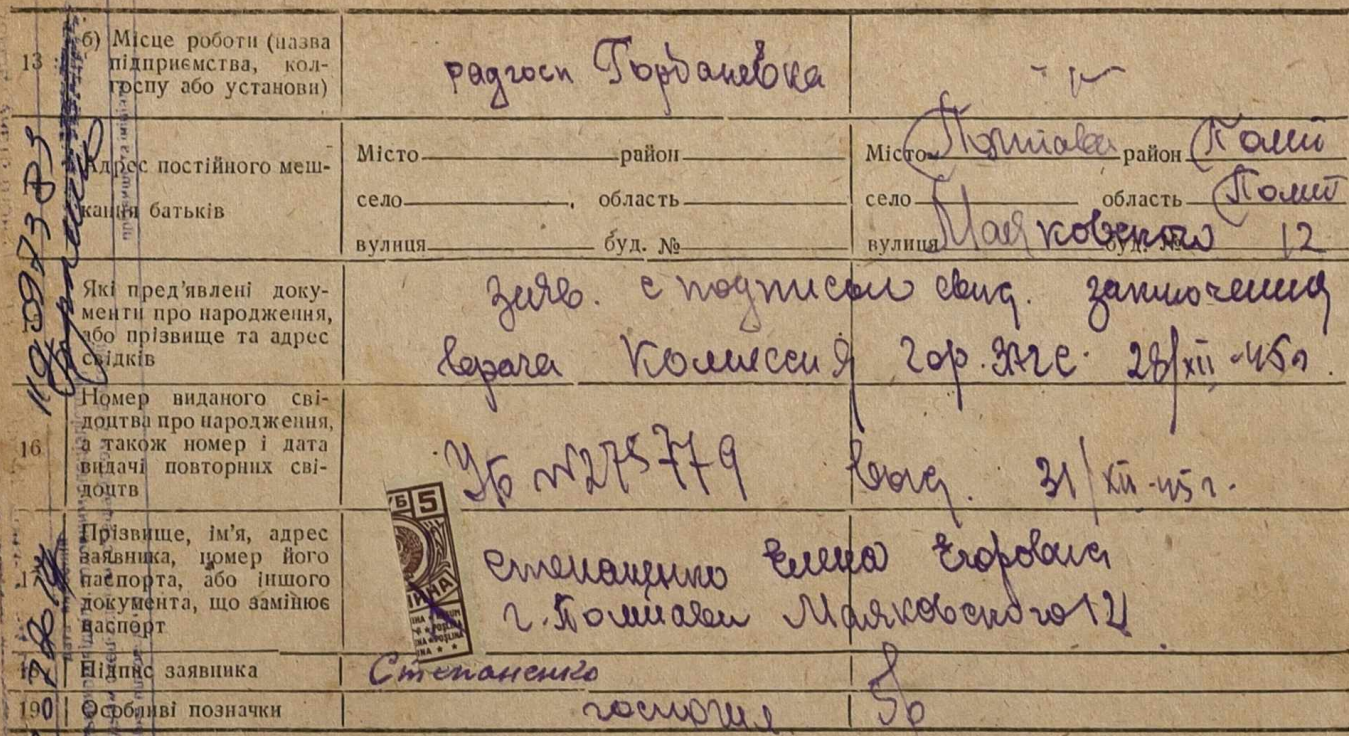 13 б) Місце роботи (назва підприємства, колгоспу або установи)
радгосп Горбаневка
Адрес постійного мешкання батьків
Місто район
село , область
вулиця буд. №
Місто Полтава район Полт
село область Полт
вулиця Маяковского буд. № 12
Які пред'явлені документи про народження, або прізвище та адрес свідків
заяв. с подписом свид. заключения
врача Комиссия гор. ЗАГС 28/XII-45 г.
16 Номер виданого свідоцтва про народження, а також номер і дата видачі повторних свідоцтв
УБ №275779 выд. 31/XII-45 г.
5
17 Прізвище, ім'я, адрес заявника, номер його паспорта, або іншого документа, що замінює паспорт
Степаненко Елена Егоровна
г. Полтава Маяковского 12
Підпис заявника
Степаненко
19 Особливі позначки